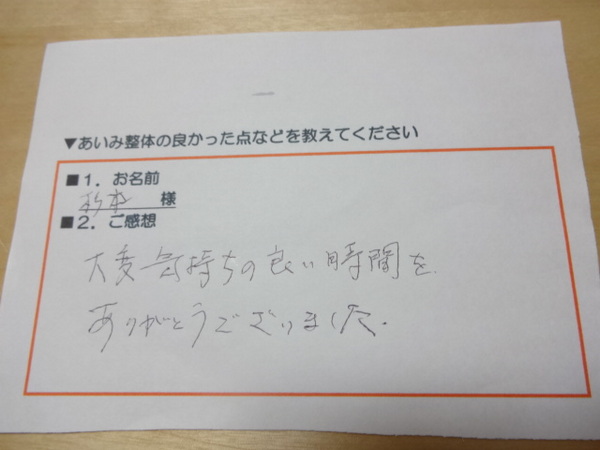 ▼あいみ整体の良かった点などを教えてください
■1．お名前
杉本 様
■2．ご感想
大変気持ちの良い時間を
ありがとうございました.